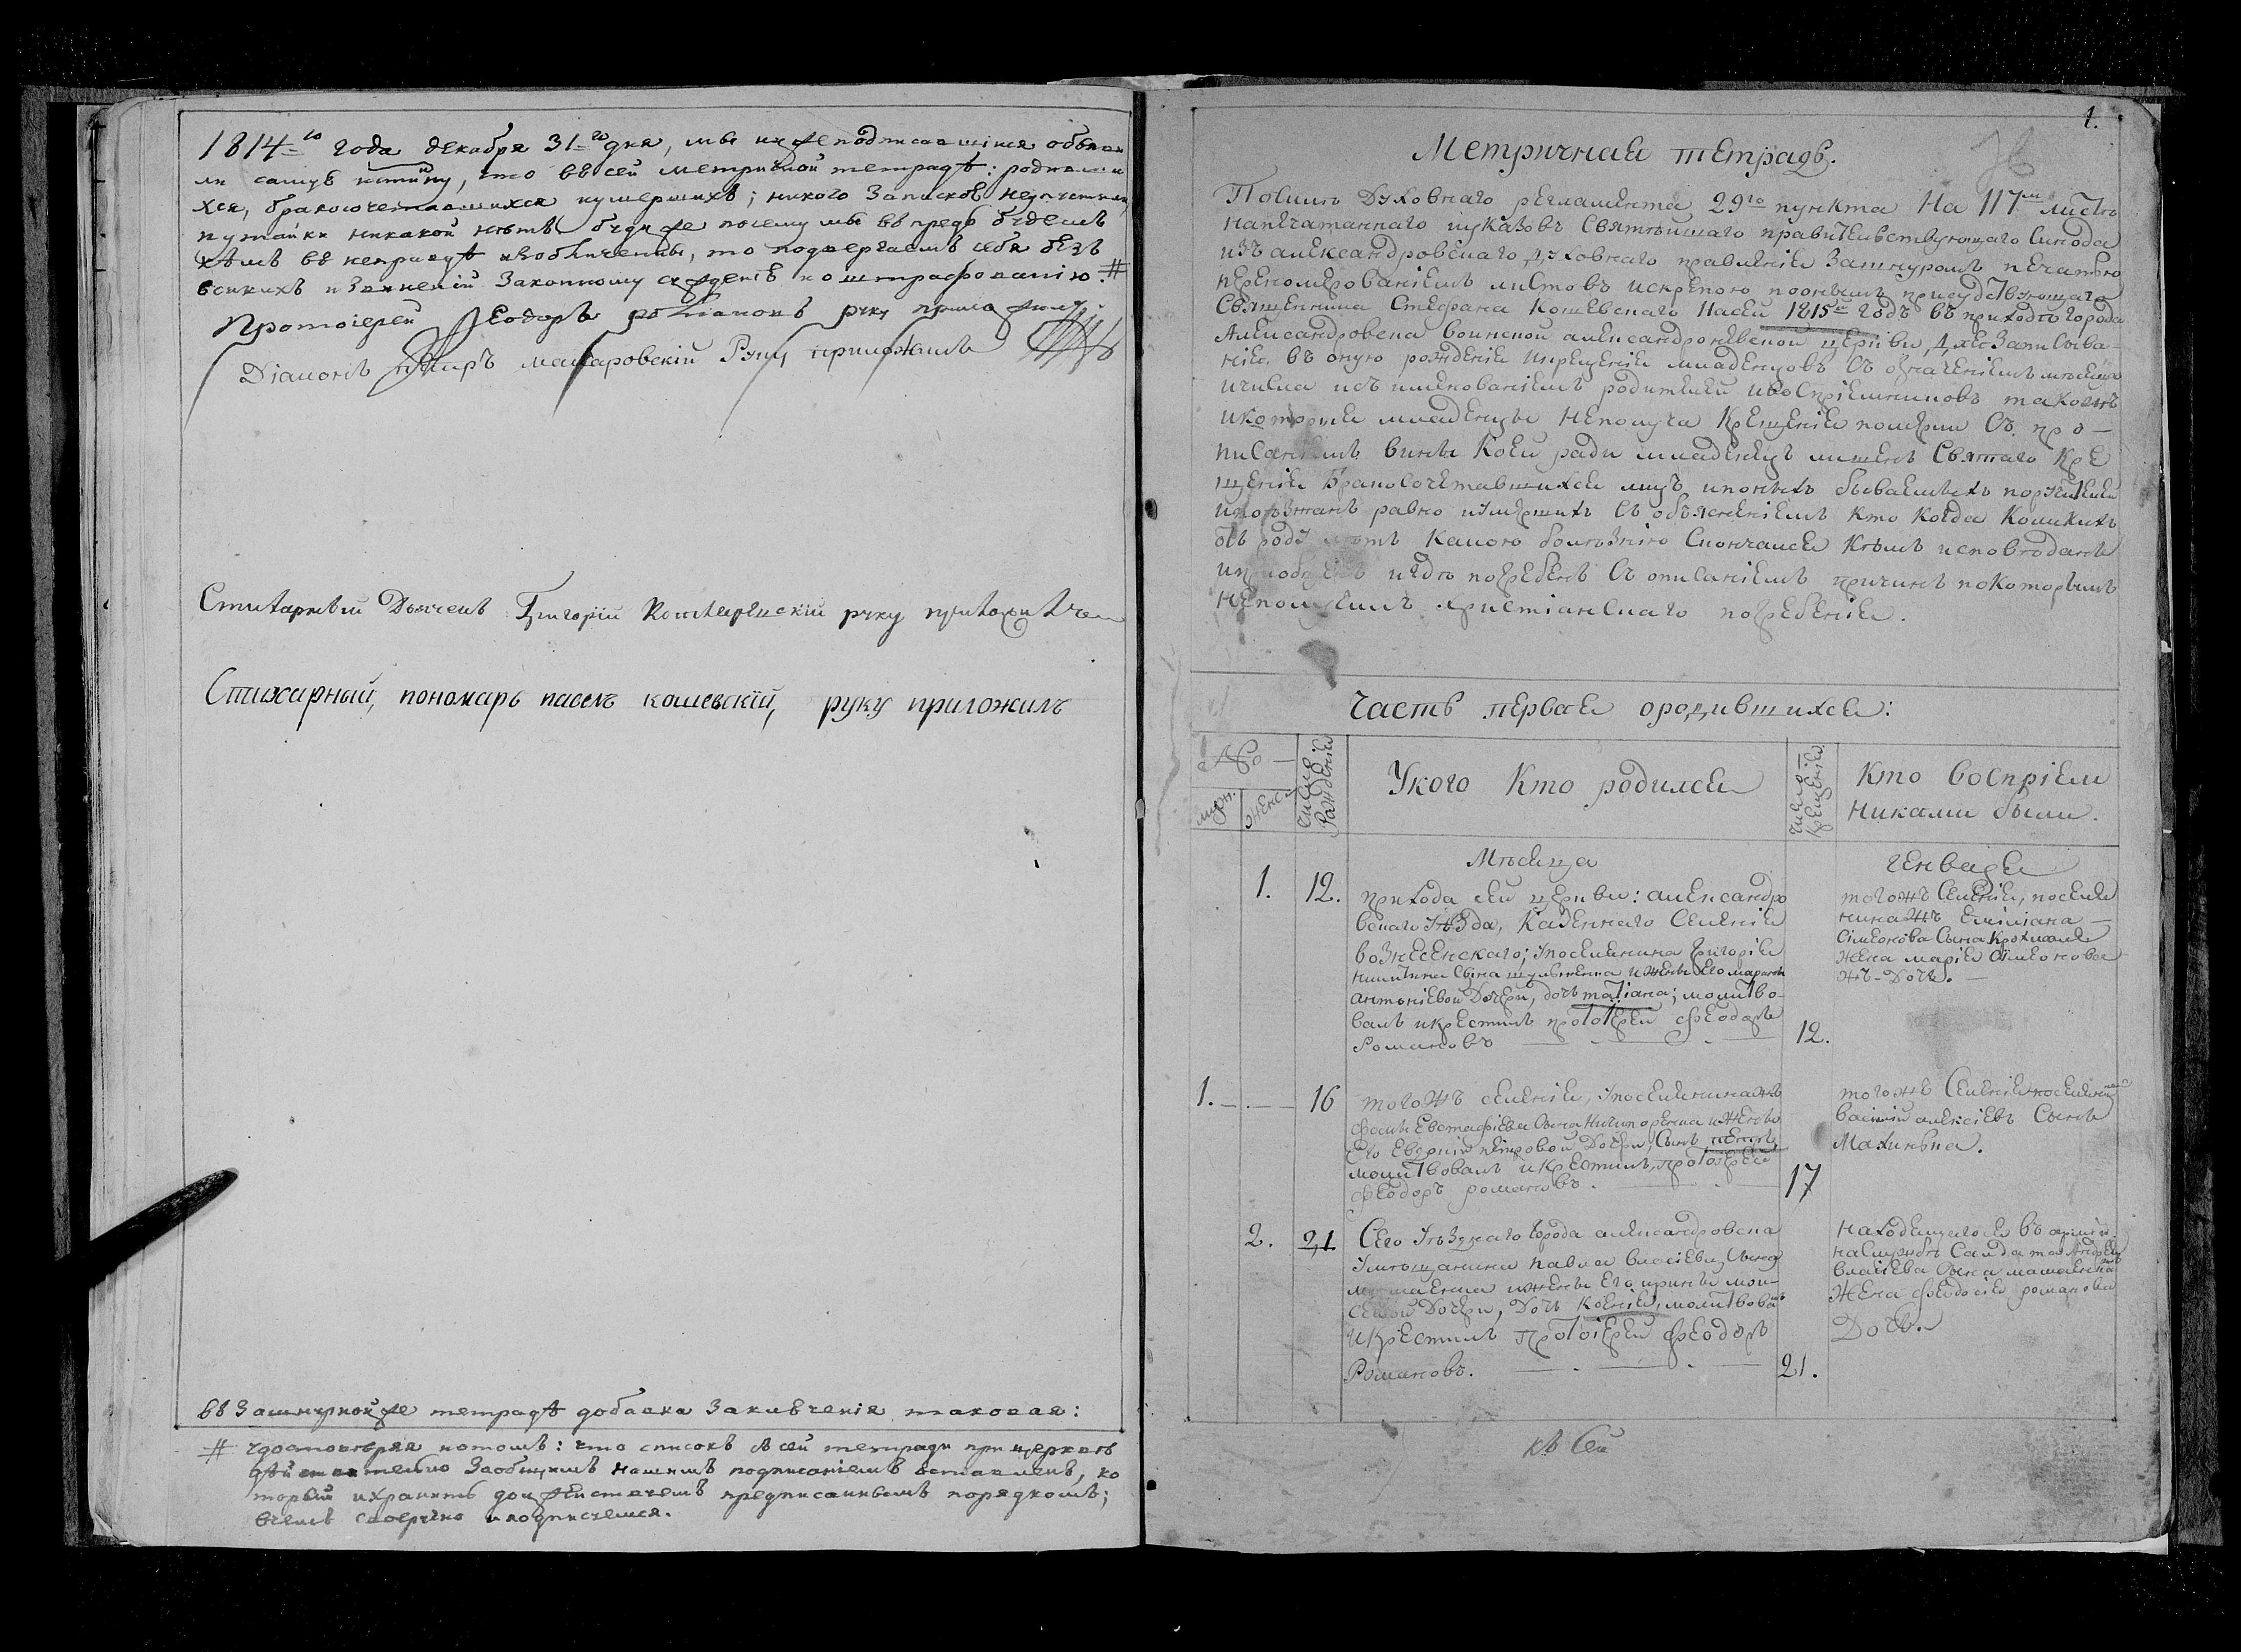 1814=го года декабря 31=го дня, мы нижеподписавшїяся объяви
ли самую истинну, что въ сей метричной тетрадѣ: родивши
хся, бракосочетавшихся и умершихъ; никого Запискою не пустили,
путайки никакой нѣтъ буди же посему мы въ предь будемъ
кѣмъ въ неправдѣ изобличенны, то подвергаемъ себя безъ
всякихъ извиненїй Законному сужденїю и штрафованїю #
Протоїерей Ѳеодоръ Романовъ руку приложилъ
Dїаконъ Макаровскїй Руку приложилъ
Стихарный Дьячекъ Григорїй руку приложилъ
Стихарный, пономарь павелъ кошевскїй, руку приложилъ
въ Зашнурной же тетрадѣ добавка Заключенїя таковая:
# удостовѣряя потомъ: что списокъ Съ сей тетради при церквѣ
дѣйствительно Заобщимъ Нашимъ подписанїемъ оставленъ, ко
торый и хранить предписаннымъ порядкомъ;
вчемъ Своеручно и подписуемся.
1.
Метричная тетрадь.
По силѣ Духовнаго регламента 29го пункта На 117м листѣ
напечатаннаго и указовъ Святѣйшаго правительствующаго Синода
изъ александровскаго духовнаго правленїя Зашнуромъ печатью
переномерованїемъ листовъ искрепою поонымъ присудствующаго
Священника Стефана Кошевскаго Насей 1815й годъ въ приходѣ города
Александровска Воинской александроневской церкви, для Записыва-
нїя въ оную рожденїя икрещенїя младенцовъ Съ означенїемъ мѣсяца
ичисла исъ именованїемъ родителей ивоспрїемниковъ такожъ
икоторые младенцы неполуча Крещенїя померли Съ про-
писанїемъ вины Коей ради младенецъ лишенъ Святаго Кре
щенїя Бракосочетавшихся лицъ ипоныхъ бываемыхъ поручителей
ипоѣзжанъ равно иумершихъ Съ объясненїемъ Кто Когда Коликихъ
отъ роду лѣтъ Какою болѣзнїю Скончался Кѣмъ исповѣданъ
ипрїобщенъ игдѣ погребенъ Съ описанїемъ причинъ покоторымъ
неполучилъ христїанскаго погребенїя.
Часть первая ородившихся:
№
муж.
женс.
число рожденїя
Укого Кто родился
число крещенїя
Кто воспрїем
никами были.
Мѣсяца
генваря
1. 12.
прихода сей церкви: александро
вскаго уѣзда, Казеннаго Селенїя
вознесенскаго; упоселянина григорїя
никитина Сына и жены Его марины
антонїевой Дочери, дочь татїана; молитво-
валъ икрестилъ протоїерей Ѳеодоръ
Романовъ
12.
тогожъ Селенїя, поселя
нина жъ Емилїана
Сімеонова Сына
жена марїя Симеонова
жъ-Дочь.
1. 16
тогожъ селенїя, упоселянина жъ
фомы Евстафїева Сына Ничипоренка и жены
Его Евдокїи петровой Дочери, Сынъ петръ,
молитвовалъ икрестилъ, протоїерей
Ѳеодоръ романовъ.
17
тогожъ Селенїя поселянинъ
василїй алексїевъ Сынъ
Махинька.
2. 21
Сего уѣзднаго города александровска
умѣщанина павла власїева Сына
и жены Его ирины мои-
сеевой Дочери, Дочь Ксенїя, молитвовалъ
икрестилъ протоїерей Ѳеодоръ
Романовъ.
21.
находящагося въ армїи
наслужбѣ Салдата Андрея
власїева Сына
жена Ѳеодосїя романова
Дочь.
къ Сей